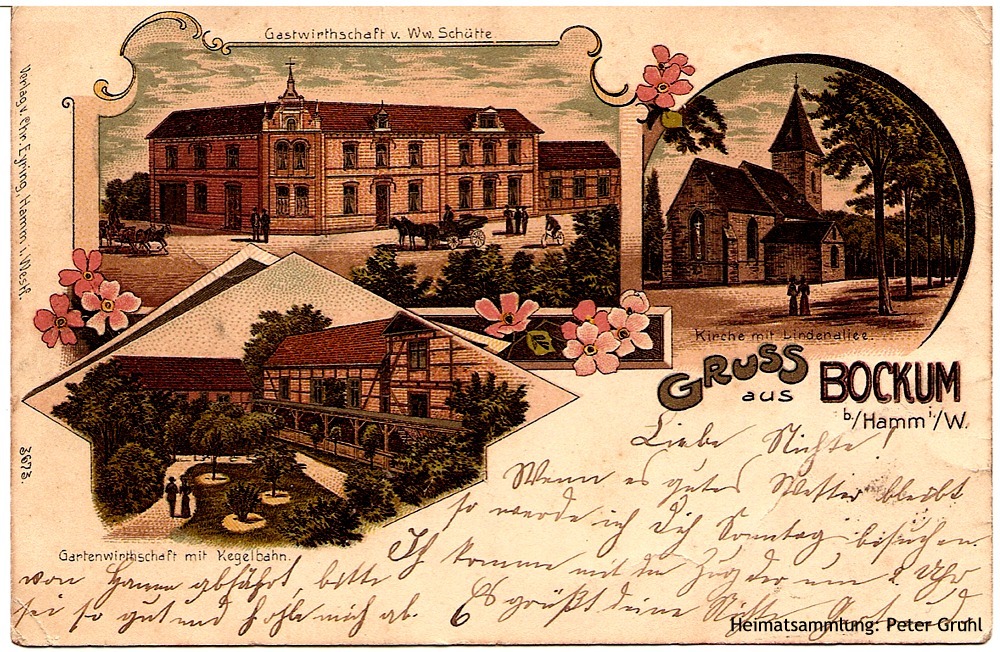 Gastwirthschaft v. Ww. Schütte.
Verlag v. Chr. Eyring, Hamm i. Westf.
Kirche mit Lindenallee.
GRUSS
aus BOCKUM
b./Hamm i./W.
3673.
Gartenwirthschaft mit Kegelbahn.
Liebe Nichte!
Wenn es gutes Wetter bleibt
so werde ich dich Sonntag besuchen.
Ich komme mit dem Zug der um 2 Uhr
von Hamm abfährt, bitte
sei so gut und hohle mich ab. Es grüßt deine
Heimatsammlung: Peter Gruhl